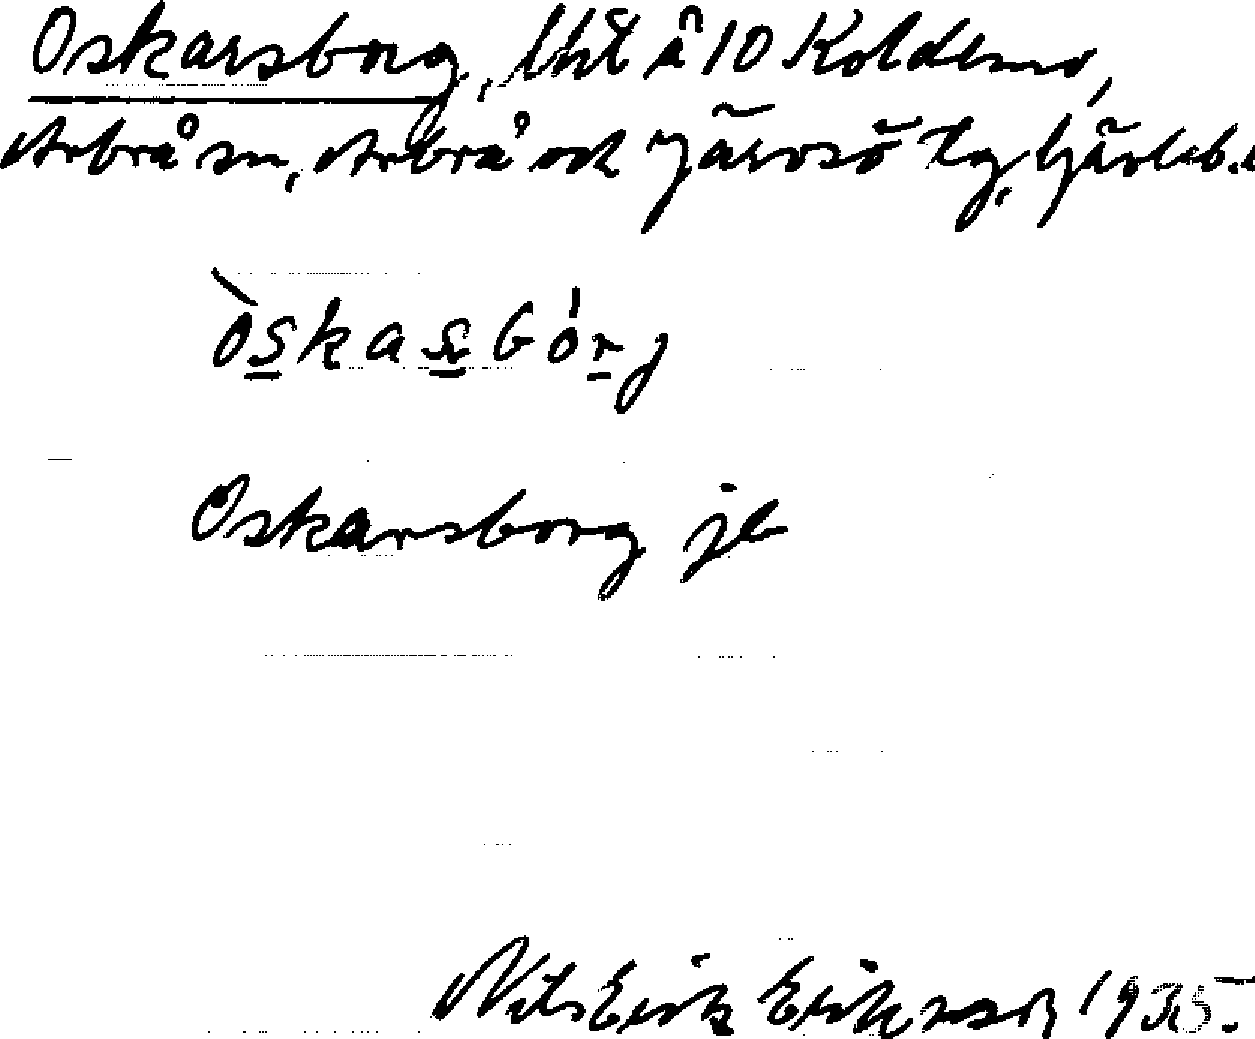 Oskarsborg, lht å 10 Koldemo,
Arbrå sn, Arbrå och Järvsö tg, Gävleb. l
òskasbórj
Oskarsborg jb
Nils Erik Eriksson 1935.